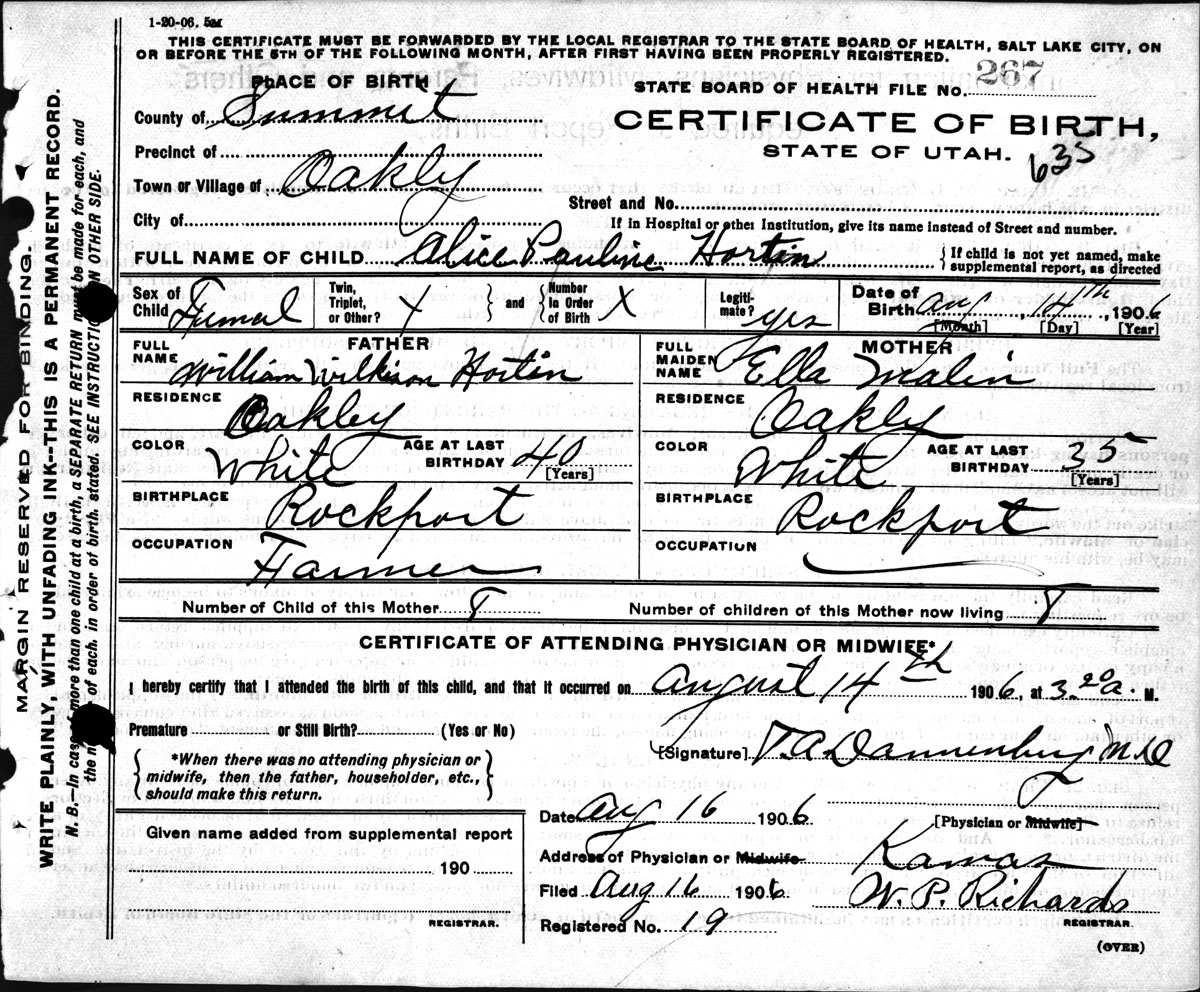 1-20-06. 5M
THIS CERTIFICATE MUST BE FORWARDED BY THE LOCAL REGISTRAR TO THE STATE BOARD OF HEALTH, SALT LAKE CITY, ON
OR BEFORE THE 5TH OF THE FOLLOWING MONTH, AFTER FIRST HAVING BEEN PROPERLY REGISTERED.
PLACE OF BIRTH
STATE BOARD OF HEALTH FILE No. 267
County of Summit
CERTIFICATE OF BIRTH,
Precinct of
STATE OF UTAH.
635
Town or Village of Oakly
Street and No.
City of
If in Hospital or other Institution, give its name instead of Street and number.
FULL NAME OF CHILD Alice Pauline Hortin
If child is not yet named, make
supplemental report, as directed
Sex of Child Femal
Twin, Triplet, or Other? X
and Number In Order of Birth X
Legitimate? yes
Date of Birth Aug, 14th, 1906
[Month] [Day] [Year]
FATHER
FULL NAME William Wilkison Hortin
RESIDENCE Oakley
COLOR White
AGE AT LAST BIRTHDAY 40 [Years]
BIRTHPLACE Rockport
OCCUPATION Farmer
MOTHER
FULL MAIDEN NAME Ella Malin
RESIDENCE Oakly
COLOR White
AGE AT LAST BIRTHDAY 35 [Years]
BIRTHPLACE Rockport
OCCUPATION
Number of Child of this Mother 8 Number of children of this Mother now living 8
CERTIFICATE OF ATTENDING PHYSICIAN OR MIDWIFE*
I hereby certify that I attended the birth of this child, and that it occurred on August 14th 1906, at 3 20 a. M.
Premature or Still Birth? (Yes or No)
[Signature] Dannenburg M.D
*When there was no attending physician or
midwife, then the father, householder, etc.,
should make this return.
Date Aug 16 1906
[Physician or Midwife]
Given name added from supplemental report
190
REGISTRAR.
Address of Physician or Midwife Kamas
Filed Aug 16 1906 W. P. Richards
Registered No. 19 REGISTRAR.
(OVER)
MARGIN RESERVED FOR BINDING.
WRITE PLAINLY, WITH UNFADING INK--THIS IS A PERMANENT RECORD.
N. B.—In case of more than one child at a birth, a SEPARATE RETURN must be made for each, and
the of each, in order of birth, stated. SEE INSTRUCTIONS ON OTHER SIDE.